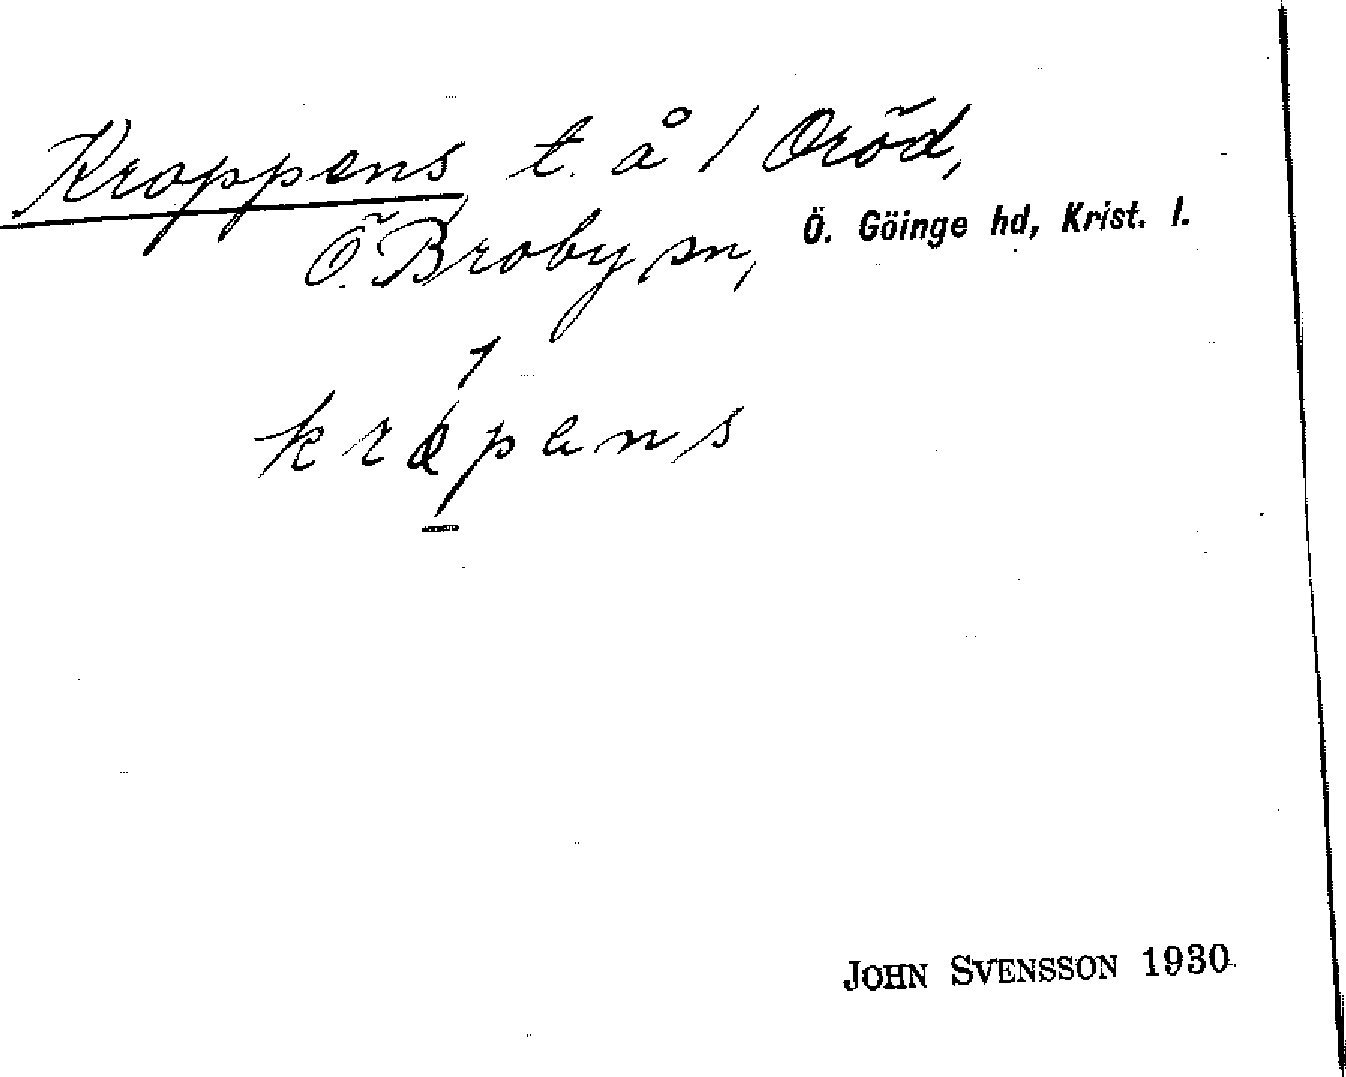 Kroppens t. å / Oröd,
Ö. Broby sn, Ö. Göinge hd, Krist. l.
JOHN SVENSSON 1930